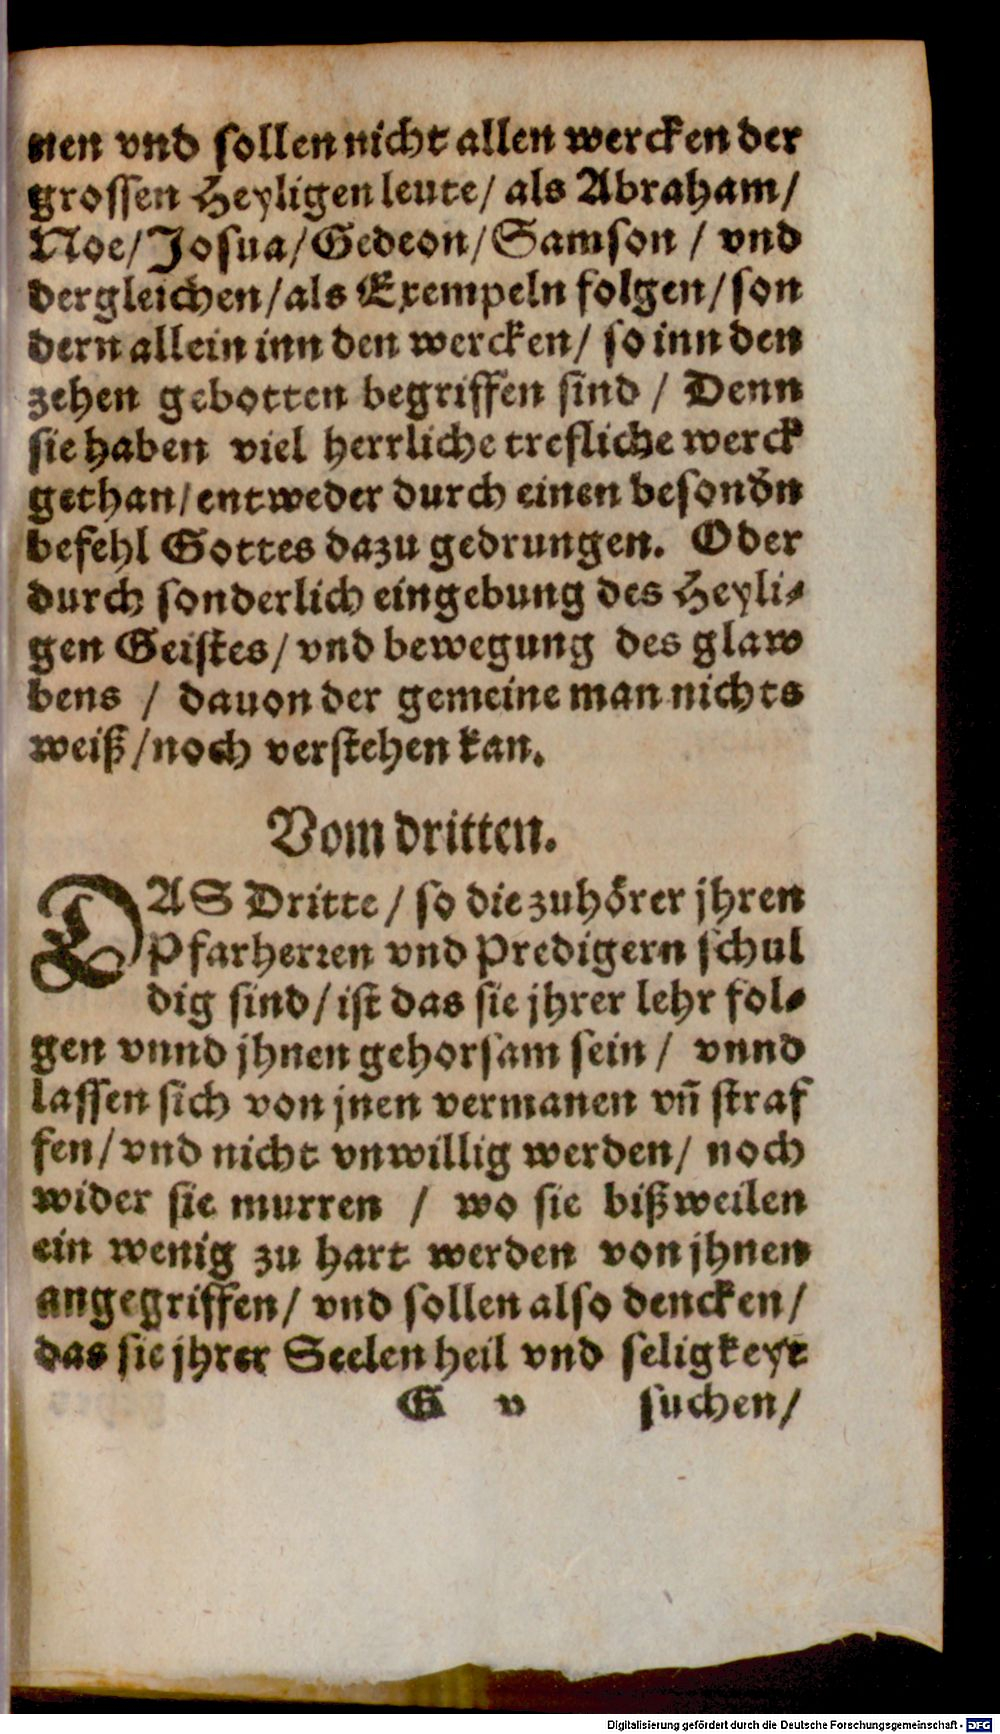 nen vnd sollen nicht allen wercken der
grossen Heyligen leute/ als Abraham/
Noe/ Josua/ Gedeon/ Samson / vnd
dergleichen/ als Exempeln folgen/ son
dern allein inn den wercken/ so inn den
zehen gebotten begriffen sind / Denn
sie haben viel herrliche trefliche werck
gethan/ entweder durch einen besondn̄
befehl Gottes dazu gedrungen. Oder
durch sonderlich eingebung des Heyli-
gen Geistes/ vnd bewegung des glaw
bens / dauon der gemeine man nichts
weiß/ noch verstehen kan.
Vom dritten.
DAS Dritte / so die zuhörer jhren
Pfarherren vnd Predigern schul
dig sind/ ist das sie jhrer lehr fol-
gen vnnd jhnen gehorsam sein / vnnd
lassen sich von jnen vermanen vn̄ straf
fen/ vnd nicht vnwillig werden/ noch
wider sie murren / wo sie bißweilen
ein wenig zu hart werden von jhnen
angegriffen/ vnd sollen also dencken/
das sie jhrer Seelen heil vnd seligkeyt
G v suchen/
Digitalisierung gefördert durch die Deutsche Forschungsgemeinschaft - DFG